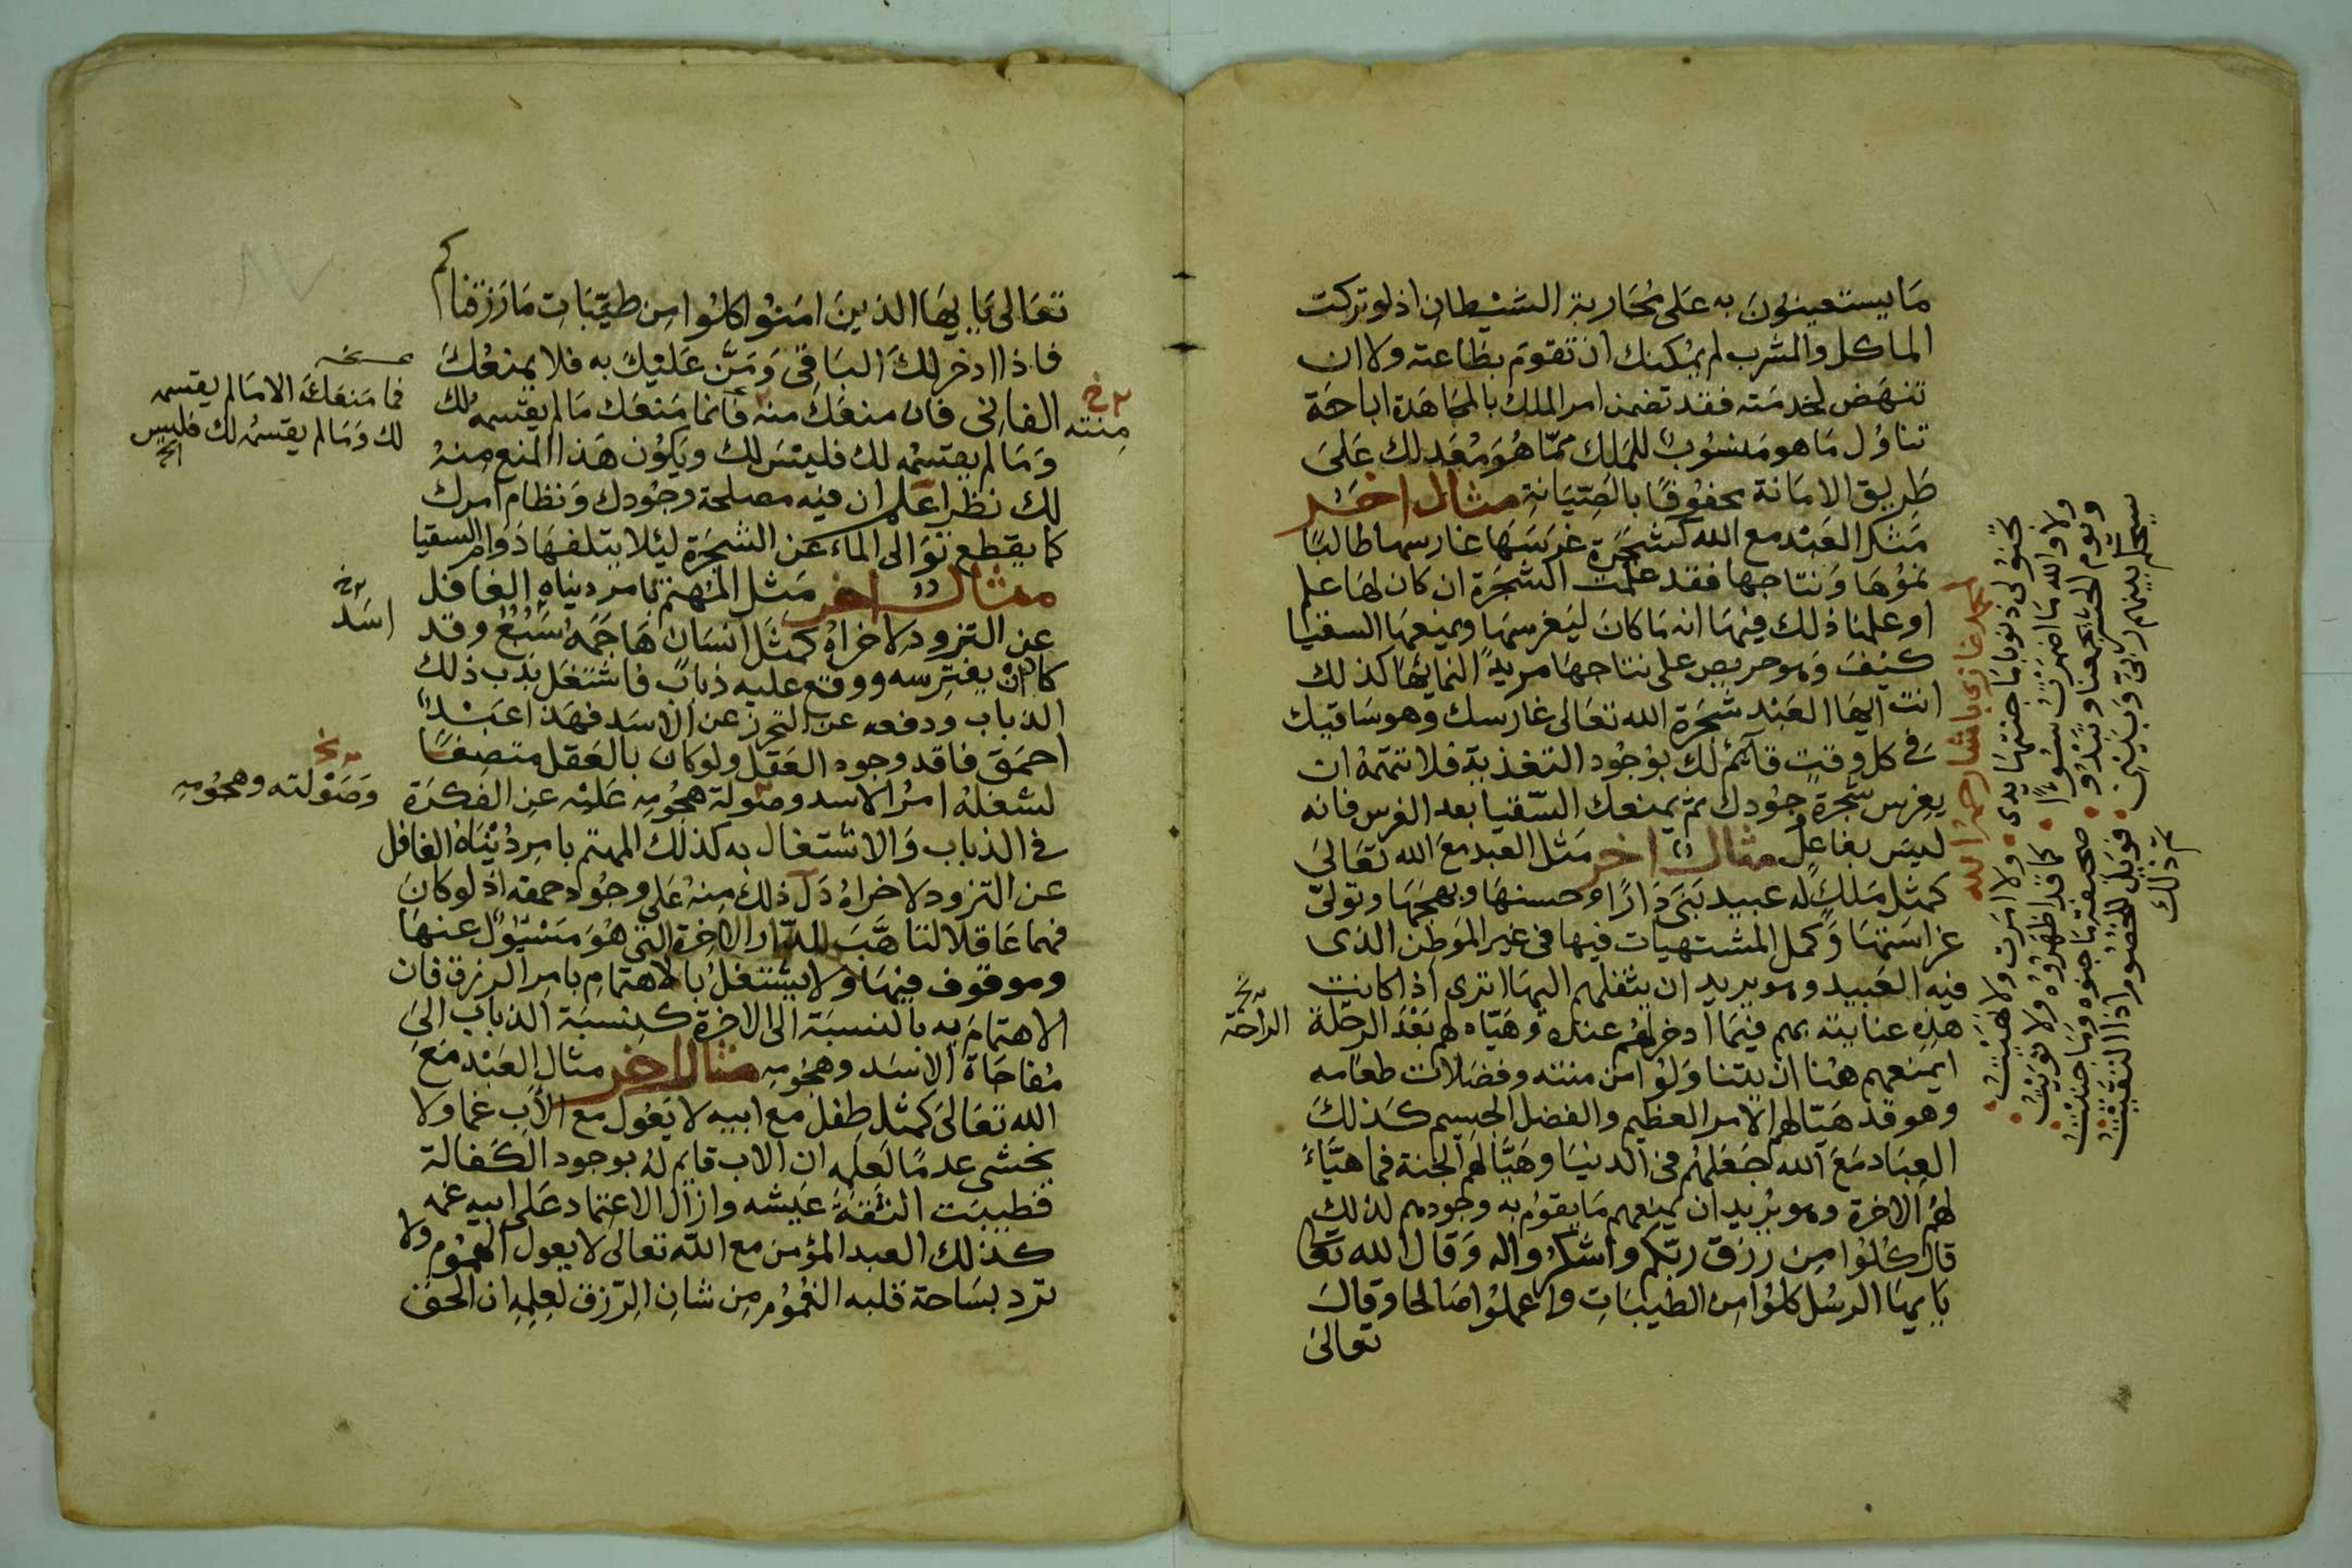 ما يستعينون به على محاربة الشيطان اذ لو تركت
الماكل والمشرب لم يمكنك ان تقوم بطاعته ولا ان
تنهض لخدمته فقد تضمن امر الملك بالمجاهدة اباحة
تناول ما هو منسوب للملك مما هو معد لك على
طريق الامانة محفوفا بالصيانة مثال اخر
مثل العبد مع الله كشجرة غرسها غارسها طالبا
نموها ونتاجها فقد علمت الشجرة ان كان لها علم
او علمنا ذلك فيها انه ما كان ليغرسها ويمنعها السقيا
كيف وهو حريص على نتاجها مريد النمائها كذلك
انت ايها العبد شجرة الله تعالى غارسك وهو ساقيك
في كل وقت قائم لك بوجود التغذية فلا تتهمه ان
يغرس شجرة جودك ثم يمنعك السقيا بعد الغرس فانه
ليس بفاعل مثال اخر مثل العبد مع الله تعالى
كمثل ملك له عبيد بنى دارا وحسنها وبهجها وتولى
غراستها وكمل المشتهيات فيها في غير الموطن الذى
فيه العبيد وهو يريد ان ينقلهم اليها اترى اذا كانت
هذه عنايته بهم فيما ادخر لهم عنده وهياه لهم بعد الرحلة
ايمنعهم هنا ان يتناولوا من مننته وفضلات طعامه
وهو قد هيا لهم الامر العظيم والفضل الجسيم كذلك
العباد مع الله جعلهم في الدنيا وهيا لهم الجنة فما هياء
لهم الاخرة وهو يريد ان يمنعهم ما يقوم به وجودهم لذلك
قال كلوا من رزق ربكم واشكروا له وقال الله تعالى
يايها الرسل كلوا من الطيبات واعملوا صالحا وقال
تعالى
الراحة
احمد غازى باشا رحمه الله
يحنو لى ذنوبا ما جنتها يدى ولا امرت ولا نهيت
ولا والله ما اضمرت سوءا كما قد اظهروه ولا نويت
ويوم الحشر يجمعنا وتبدو صحيفة ما جنوه وما جنيت
سيحكم بينهم ربى وبينى فويل للخصوم اذا التقيت
تم ذلك
تعالى يايها الذين امنوا كلوا من طيبات ما رزقناكم
فاذا ادخر لك الباقى ومن عليك به فلا يمنعك
الفانى فان منعك منه فانما منعك ما لم يقسمه لك
وما لم يقسمه لك فليس لك ويكون هذا المنع منه
لك نظرا علم ان فيه مصلحة وجودك ونظام امرك
كما يقطع توالى الماء عن الشجرة ليلا يتلفها دوام السقيا
مثال اخر مثل المهتم بامر دنياه الغافل
عن التزود لاخراه كمثل انسان هاجمه سبع وقد
كاد ان يفترسه ووقع عليه ذباب فاشتغل بذب ذلك
الذباب ودفعه عن التحرز عن الاسد فهذا عبد
احمق فاقد وجود العقل ولو كان بالعقل متصفا
لشغله امر الاسد وصولة هجومه عليه عن الفكرة
في الذباب والاشتغال به كذلك المهتم بامر دنياه الغافل
عن التزود لاخراه دل ذلك منه على وجود حمقه اذ لو كان
فهما عاقلا لتاهب للدار الاخرة التي هو مسئول عنها
وموقوف فيها ولا يشتغل بالاهتمام بامر الرزق فان
الاهتمام به بالنسبة الى الاخرة كنسبة الذباب الى
مفاجاة الاسد وهجومه مثال اخر مثال العبد مع
الله تعالى كمثل طفل مع ابيه لا يعول مع الاب غما ولا
يخشى عدما لعلمه ان الاب قايم له بوجود الكفالة
فطيبت الثقة عيشه وازال الاعتماد على ابيه غمه
كذلك العبد المؤمن مع الله تعالى لا يعول الهموم ولا
ترد بساحة قلبه الغموم من شان الرزق لعلمه ان الحق
منته
نسخه
فما منعك الا ما لم يقسمه
لك وما لم يقسمه لك فليس
الخ
اسد
وصولته وهجومه